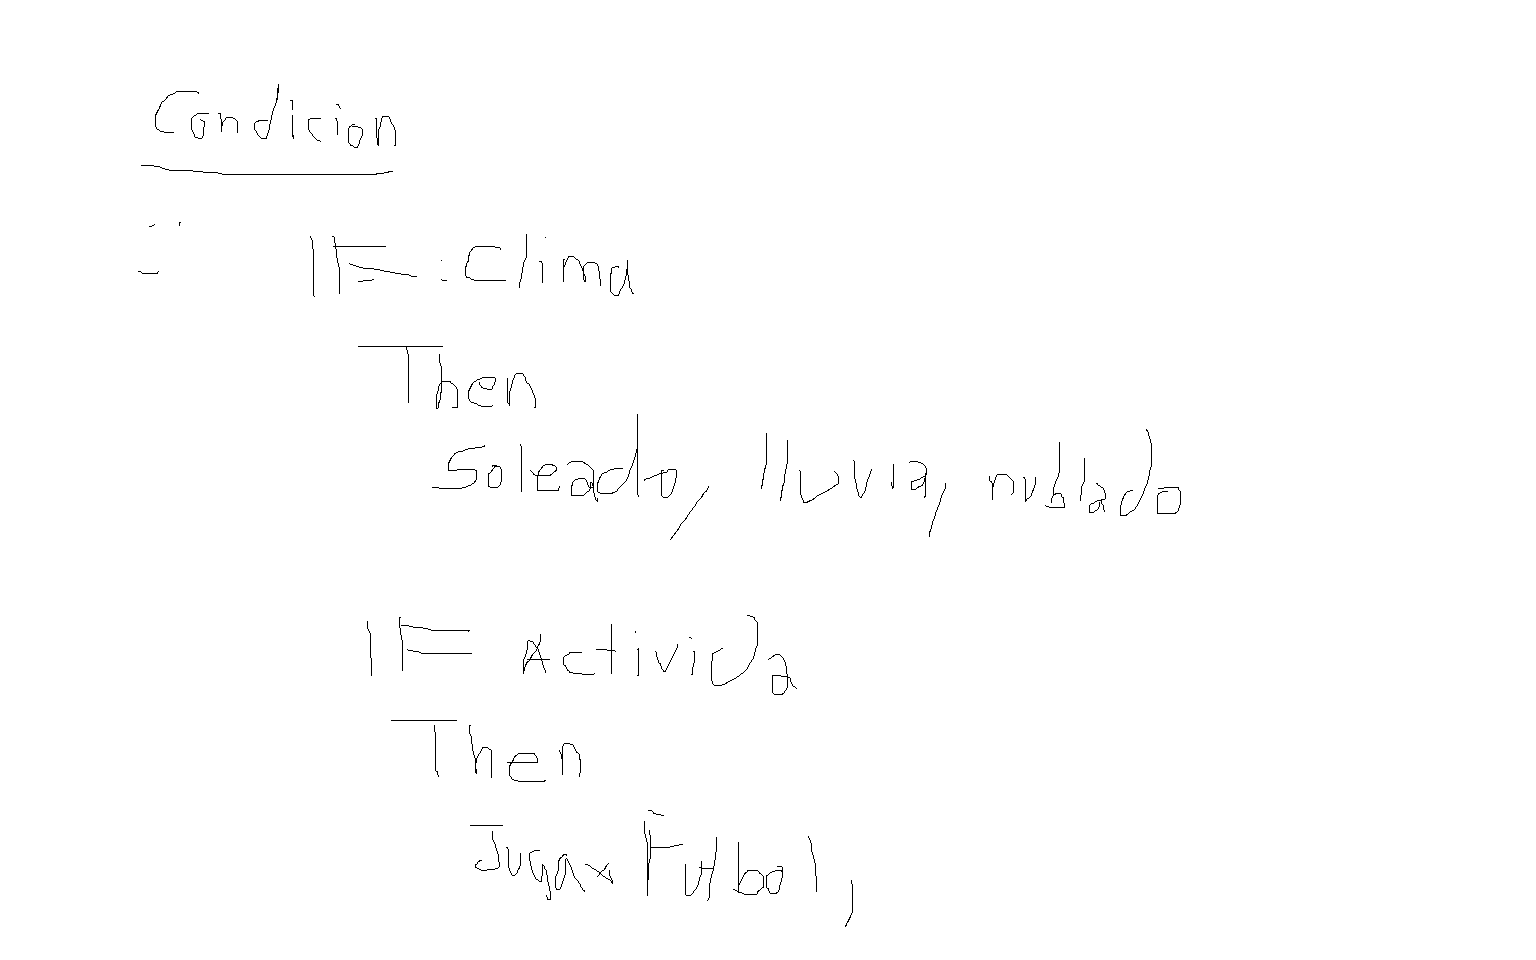 Condicion
IF : Clima
Then
Soleado, lluvia, nublado
IF Activida
Then
Jugar Futbol,